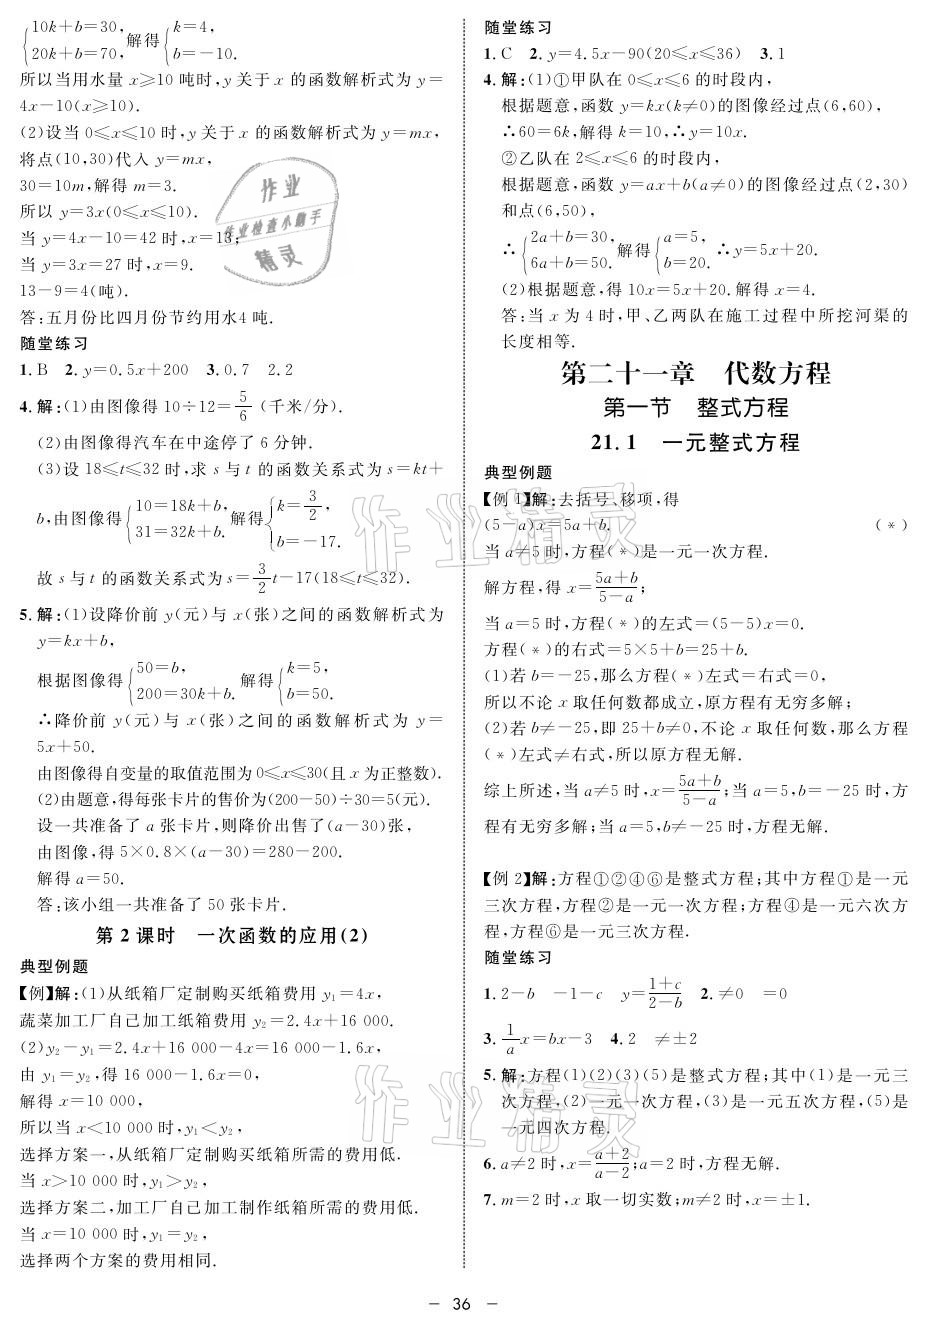 {10k+b=30, 20k+b=70, 解得{k=4, b=-10.
所以当用水量 x≥10 吨时,y 关于 x 的函数解析式为 y=
4x-10(x≥10).
(2)设当 0≤x≤10 时,y 关于 x 的函数解析式为 y=mx,
将点(10,30)代入 y=mx,
30=10m,解得 m=3.
所以 y=3x(0≤x≤10).
当 y=4x-10=42 时,x=13;
当 y=3x=27 时,x=9.
13-9=4(吨).
答:五月份比四月份节约用水4 吨.
随堂练习
1. B 2. y=0.5x+200 3. 0.7 2.2
4. 解:(1)由图像得 10÷12=5/6 (千米/分).
(2)由图像得汽车在中途停了 6 分钟.
(3)设 18≤t≤32 时,求 s 与 t 的函数关系式为 s=kt+
b,由图像得{10=18k+b, 31=32k+b. 解得{k=3/2, b=-17.
故 s 与 t 的函数关系式为 s=3/2t-17(18≤t≤32).
5. 解:(1)设降价前 y(元)与 x(张)之间的函数解析式为
y=kx+b,
根据图像得{50=b, 200=30k+b. 解得{k=5, b=50.
∴降价前 y(元)与 x(张)之间的函数解析式为 y=
5x+50.
由图像得自变量的取值范围为 0≤x≤30(且 x 为正整数).
(2)由题意,得每张卡片的售价为(200-50)÷30=5(元).
设一共准备了 a 张卡片,则降价出售了(a-30)张,
由图像,得 5×0.8×(a-30)=280-200.
解得 a=50.
答:该小组一共准备了 50 张卡片.
第 2 课时 一次函数的应用(2)
典型例题
【例】解:(1)从纸箱厂定制购买纸箱费用 y₁=4x,
蔬菜加工厂自己加工纸箱费用 y₂=2.4x+16 000.
(2)y₂-y₁=2.4x+16 000-4x=16 000-1.6x,
由 y₁=y₂,得 16 000-1.6x=0,
解得 x=10 000,
所以当 x<10 000 时,y₁<y₂,
选择方案一,从纸箱厂定制购买纸箱所需的费用低.
当 x>10 000 时,y₁>y₂,
选择方案二,加工厂自己加工制作纸箱所需的费用低.
当 x=10 000 时,y₁=y₂,
选择两个方案的费用相同.
随堂练习
1. C 2. y=4.5x-90(20≤x≤36) 3. 1
4. 解:(1)①甲队在 0≤x≤6 的时段内,
根据题意,函数 y=kx(k≠0)的图像经过点(6,60),
∴60=6k,解得 k=10,∴y=10x.
②乙队在 2≤x≤6 的时段内,
根据题意,函数 y=ax+b(a≠0)的图像经过点(2,30)
和点(6,50),
∴{2a+b=30, 6a+b=50. 解得{a=5, b=20. ∴y=5x+20.
(2)根据题意,得 10x=5x+20.解得 x=4.
答:当 x 为 4 时,甲、乙两队在施工过程中所挖河渠的
长度相等.
第二十一章 代数方程
第一节 整式方程
21.1 一元整式方程
典型例题
【例 1】解:去括号、移项,得
(5-a)x=5a+b. (*)
当 a≠5 时,方程(*)是一元一次方程.
解方程,得 x=5a+b/5-a;
当 a=5 时,方程(*)的左式=(5-5)x=0.
方程(*)的右式=5×5+b=25+b.
(1)若 b=-25,那么方程(*)左式=右式=0,
所以不论 x 取任何数都成立,原方程有无穷多解;
(2)若 b≠-25,即 25+b≠0,不论 x 取任何数,那么方程
(*)左式≠右式,所以原方程无解.
综上所述,当 a≠5 时,x=5a+b/5-a;当 a=5,b=-25 时,方
程有无穷多解;当 a=5,b≠-25 时,方程无解.
【例 2】解:方程①②④⑥是整式方程;其中方程①是一元
三次方程,方程②是一元一次方程;方程④是一元六次方
程,方程⑥是一元三次方程.
随堂练习
1. 2-b -1-c y=1+c/2-b 2. ≠0 =0
3. 1/a x=bx-3 4. 2 ≠±2
5. 解:方程(1)(2)(3)(5)是整式方程;其中(1)是一元三
次方程,(2)一元一次方程,(3)是一元五次方程,(5)是
一元四次方程.
6. a≠2 时,x=a+2/a-2;a=2 时,方程无解.
7. m=2 时,x 取一切实数;m≠2 时,x=±1.
作业
作业检查小助手
精灵
作业精灵
作业精灵
- 36 -